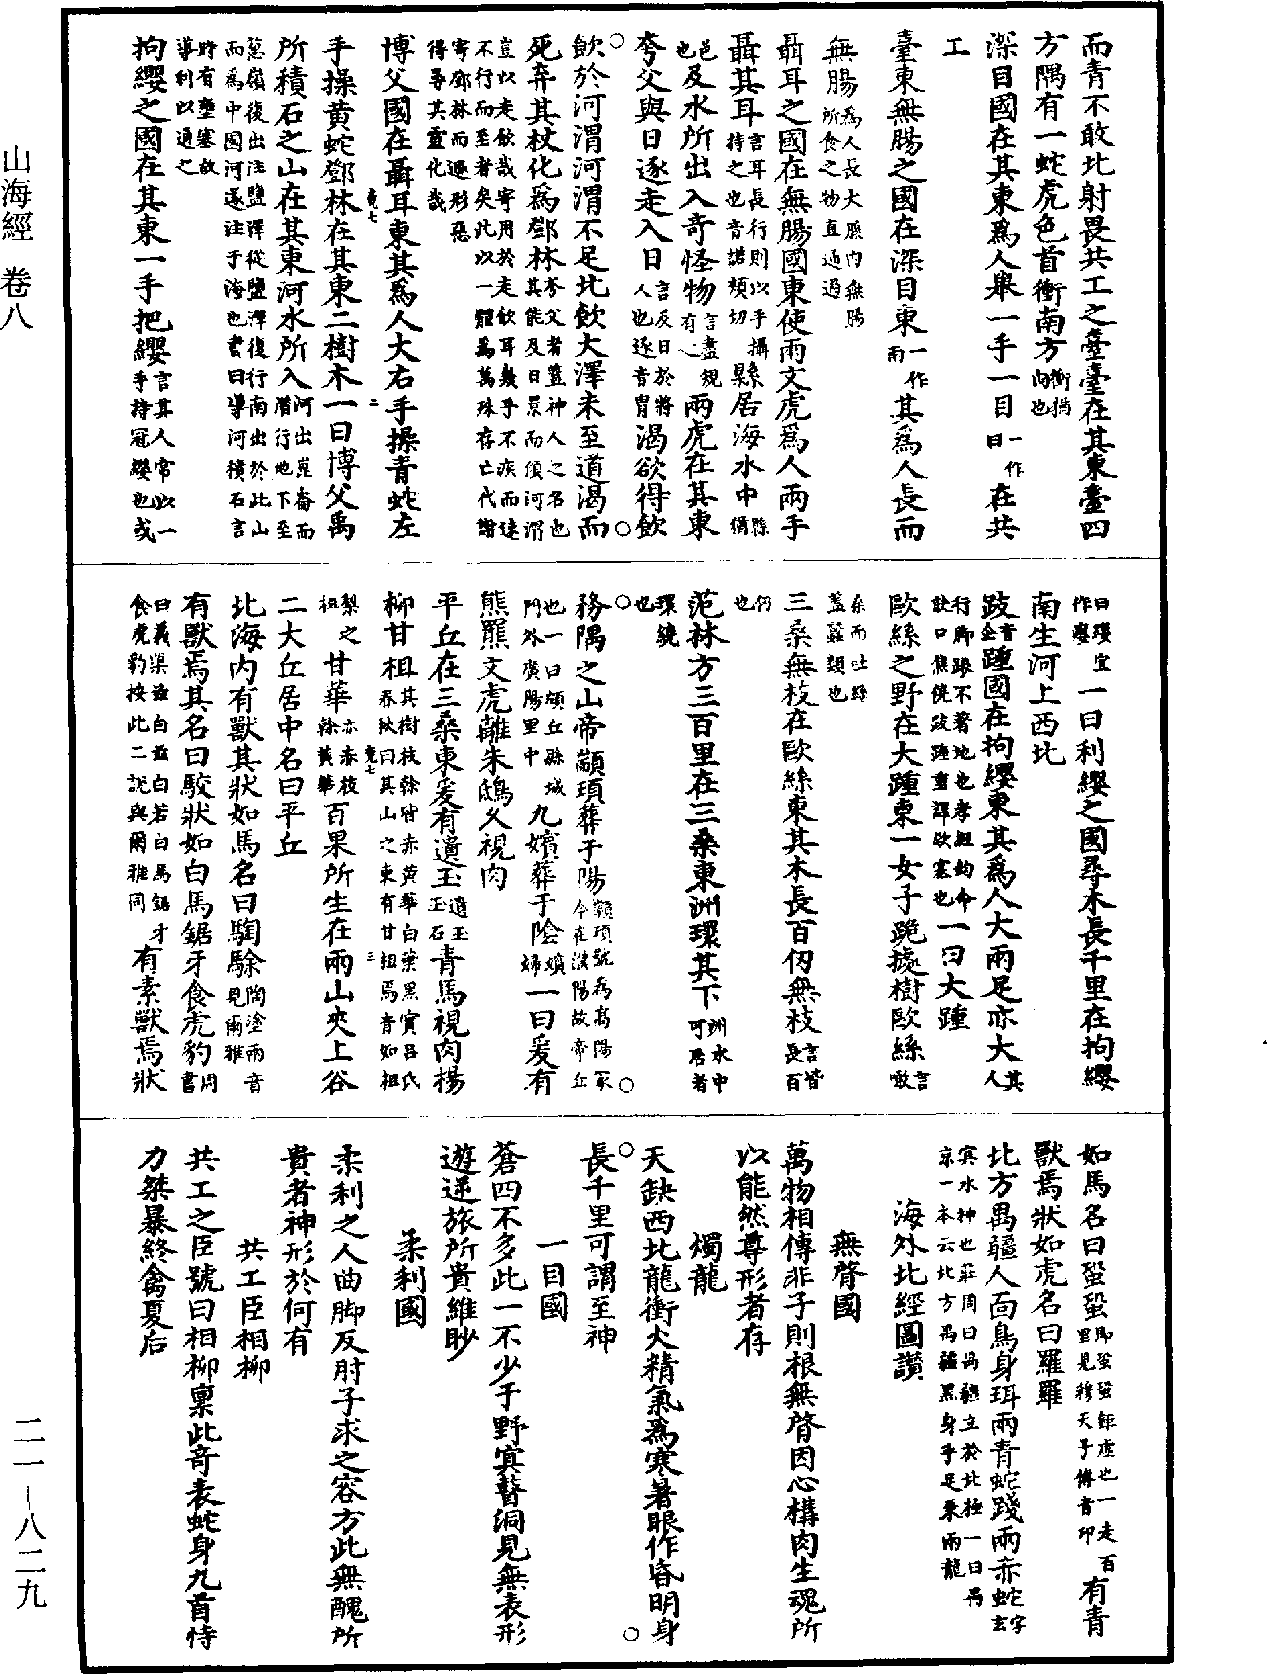 山海經 卷八
而青不敢北射畏共工之臺臺在其東臺四
方隅有一蛇虎色首衝南方衝猶向也
深目國在其東爲人舉一手一目一作曰在共
工
臺東無腸之國在深目東一作南其爲人長而
無腸爲人長大腹內無腸所食之物直通過
聶耳之國在無腸國東使兩文虎爲人兩手
聶其耳言耳長行則以手攝持之也音諾頰切縣居海水中縣猶
邑也及水所出入奇怪物言盡規有之兩虎在其東
夸父與日逐走入日言及日於將人也逐音冑渴欲得飲
飲於河渭河渭不足北飲大澤未至道渴而
死弃其杖化爲鄧林夸父者蓋神人之名也其能及日景而傾河渭
豈以走飲哉寄用於走飲耳幾乎不疾而速不行而至者矣此以一體爲萬殊存亡代謝
寄鄧林而遯形惡得尋其靈化哉
博父國在聶耳東其爲人大右手操青蛇左
手操黃蛇鄧林在其東二樹木一曰博父禹
所積石之山在其東河水所入河出崑崙而潛行地下至
葱嶺復出注鹽澤從鹽澤復行南出於此山而爲中國河遂注于海也書曰導河積石言
時有壅塞故導利以通之
拘纓之國在其東一手把纓言其人常以一手持冠纓也或
曰纓宜作癭一曰利纓之國尋木長千里在拘纓
南生河上西北
跂音企踵國在拘纓東其爲人大兩足亦大其人
行脚跟不著地也孝經鉤命訣曰焦僥跂踵重譯欵塞也一曰大踵
歐絲之野在大踵東一女子跪據樹歐絲言噉
桑而吐絲蓋蠶類也
三桑無枝在歐絲東其木長百仞無枝言皆長百
仞也
范林方三百里在三桑東洲環其下洲水中可居者
環繞也
務隅之山帝顓頊葬于陽顓頊號爲高陽冢今在濮陽故帝丘
也一曰頓丘縣城門外廣陽里中九嬪葬于陰嬪婦一曰爰有
熊羆文虎離朱鴟久視肉
平丘在三桑東爰有遺玉遺玉玉石青馬視肉楊
柳甘柤其樹枝榦皆赤黃華白葉黑實呂氏春秋曰其山之東有甘柤焉音如柤
棃之柤甘華亦赤枝榦黃華百果所生在兩山夾上谷
二大丘居中名曰平丘
北海內有獸其狀如馬名曰騊駼陶塗兩音見爾雅
有獸焉其名曰駮狀如白馬鋸牙食虎豹周書
曰義渠茲白茲白若白馬鋸牙食虎豹按此二說與爾雅同有素獸焉狀
如馬名曰蛩蛩卽蛩蛩鉅虛也一走百里見穆天子傳音卭有青
獸焉狀如虎名曰羅羅
北方禺彊人面鳥身珥兩青蛇踐兩赤蛇字玄
冥水神也莊周曰禺彊立於北極一曰禺京一本云北方禺彊黑身手足乘兩龍
海外北經圖讚
無䏿國
萬物相傳非子則根無䏿因心構肉生魂所
以能然尊形者存
燭龍
天缺西北龍銜火精氣爲寒暑眼作昏明身
長千里可謂至神
一目國
蒼四不多此一不少于野冥瞽洞見無表形
遊逆旅所貴維眇
柔利國
柔利之人曲脚反肘子求之容方此無醜所
貴者神形於何有
共工臣相柳
共工之臣號曰相柳稟此奇表蛇身九首恃
力桀暴終禽夏后
二一－八二九